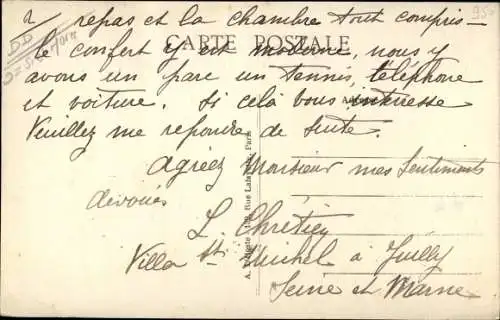 2 repas et la chambre tout compris -
CARTE POSTALE
le confort y est moderne, nous y
avons un parc un tennis, téléphone
et voiture. Si celà vous intéresse
Veuillez me repondre de suite.
Agréez Monsieur mes Sentiments
devoués
L. Chretien
Villa St. Michel à Juilly
Seine et Marne
Rue Lafayette, Paris